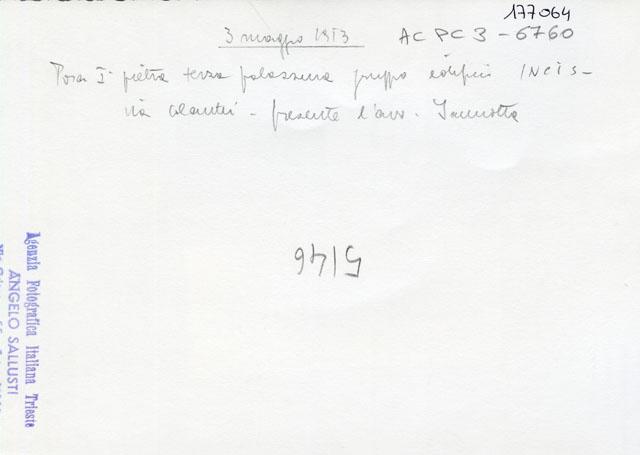 177064
3 maggio 1953 AC PC 3 - 6760
Posa Iª pietra terza palazzina gruppo edifici INCIS -
via - presente l'avv.
5/46
Agenzia Fotografica Italiana Trieste
ANGELO SALLUSTI